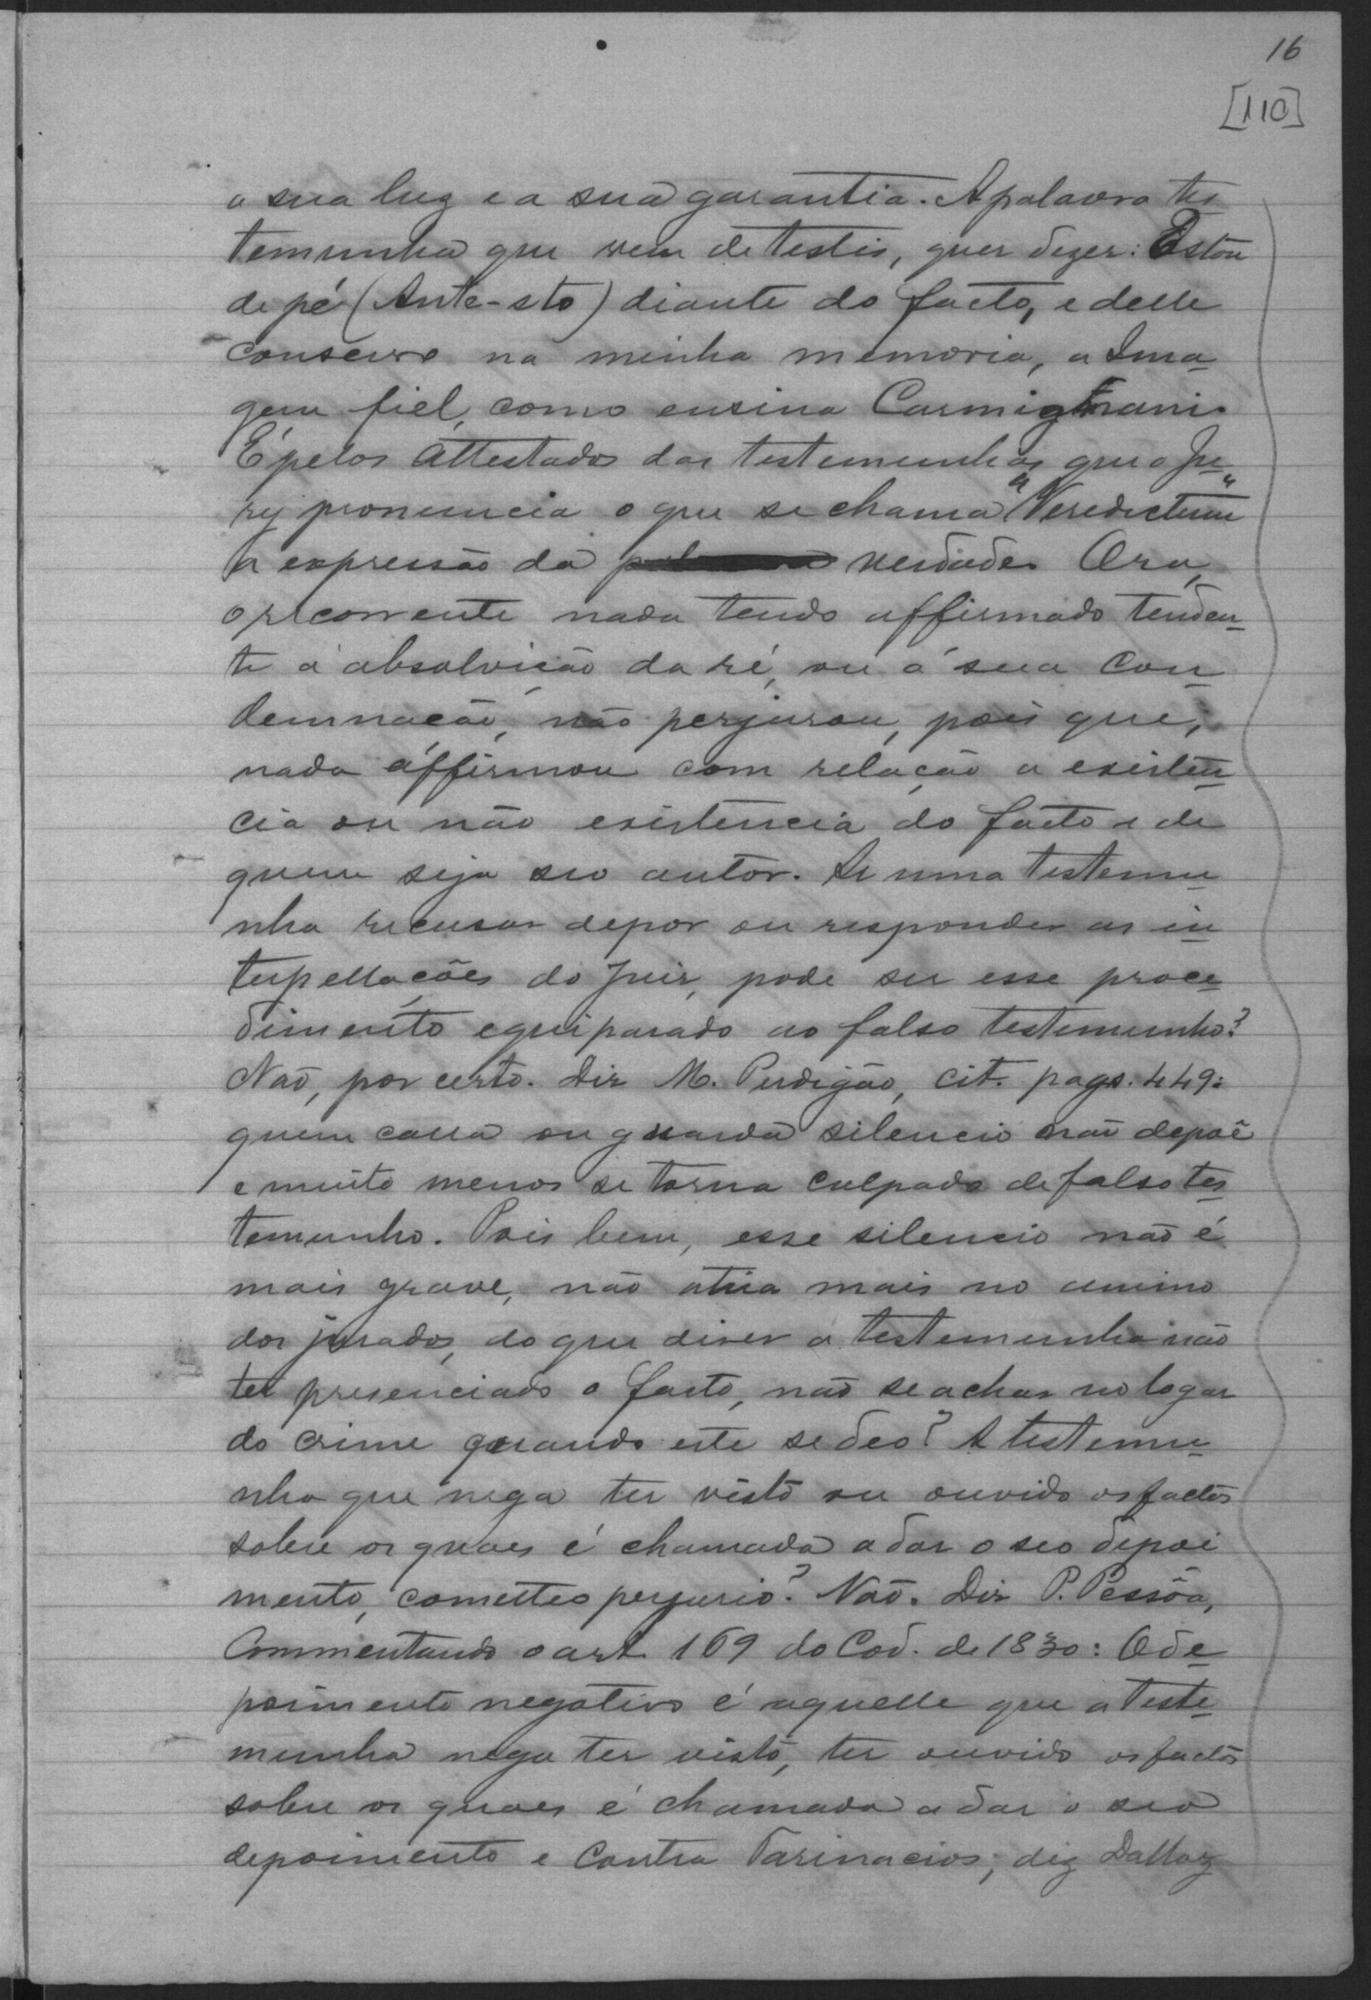 16
[110]
a sua luz e a sua garantia. A palavra tes
temunha que vem de testis, quer dizer: Estou
de pé (Ante-sto) diante do facto, e delle
conservo na minha memoria, a Ima-
gem fiel, como ensina Carmignani.
É pelos attestados das testemunhas que o Ju-
ry pronuncia o que se chama "Veredictum"
a expressão da verdade. Ora,
o recorrente nada tendo affirmado tenden-
te á absolvição da ré, ou á sua con-
demnação, não perjurou, pois que,
nada affirmou com relação a existen-
cia ou não existencia do facto e de
quem seja seo autor. Se uma testemu-
nha recusar depor ou responder as in-
terpellações do Juir, pode ser esse proce-
dimento equiparado ao falso testemunho?
Não, por certo. Dir M. Perdigão, cit. pags. 449:
quem calla ou guarda silencio não depoê
e muito menos se torna culpado de falso tes
temunho. Pois bem, esse silencio não é
mais grave, não atúa mais no animo
dos jurados, do que direr a testemunha não
ter presenciado o facto, não se achar no logar
do crime quando este se deo? A testemu-
nha que nega ter visto ou ouvido os factos
sobre os quaes é chamada a dar o seo depoi
mento, cometteo perjurio? Não. Dir P. Pessôa,
Commentando o art. 169 do Cod. de 1830: O de-
poimento negativo é aquelle que a teste-
munha nega ter visto, ter ouvido os factos
sobre os quaes é chamada a dar o seo
depoimento e contra Farinacios; diz Dalloz